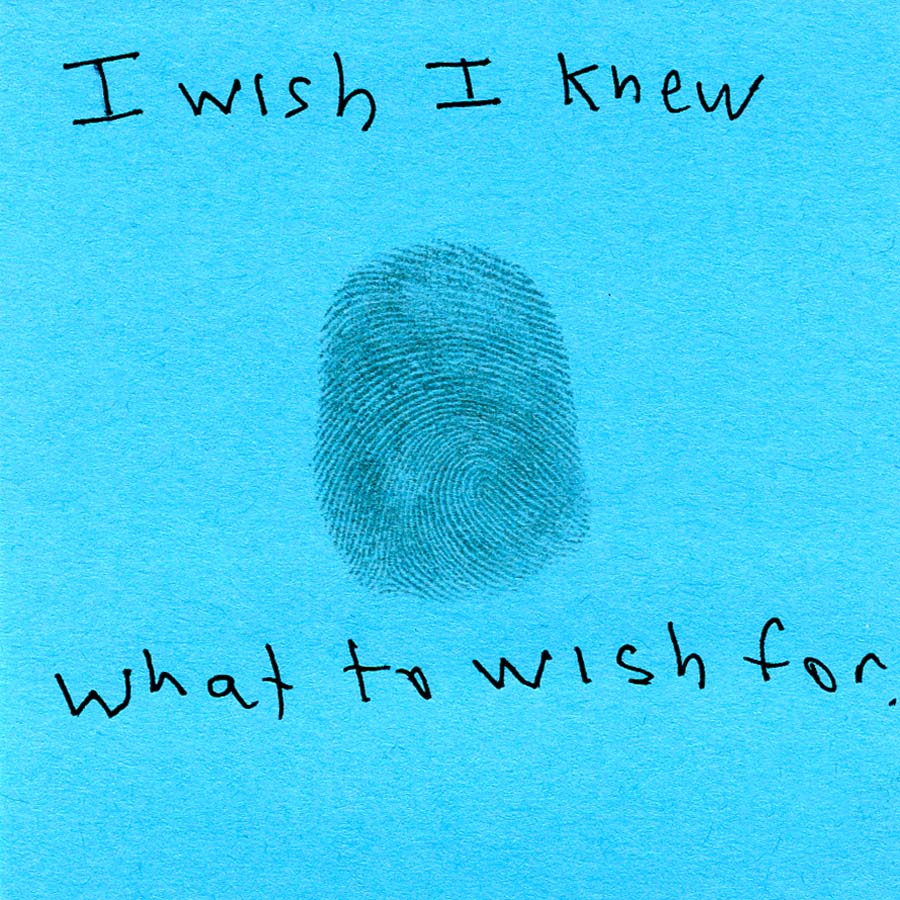 I wish I knew
what to wish for.